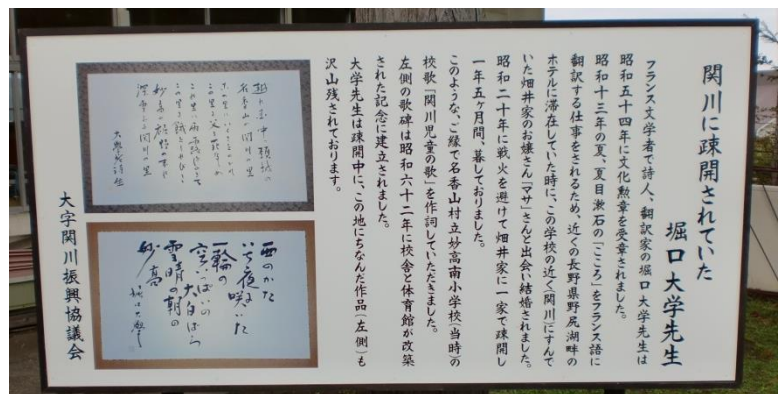 関川に疎開されていた
堀口大学先生
フランス文学者で詩人、翻訳家の堀口大学先生は
昭和五十四年に文化勲章を受章されました。
昭和十三年の夏、夏目漱石の「こころ」をフランス語に
翻訳する仕事をされるため、近くの長野県野尻湖畔の
ホテルに滞在していた時に、この学校の近く(関川)にすんで
いた畑井家のお嬢さん「マサ」さんと出会い結婚されました。
昭和二十年に戦火を避けて畑井家に一家で疎開し
一年五ヶ月間、暮しておりました。
このような、ご縁で名香山村立妙高南小学校(当時)の
校歌「関川児童の歌」を作詞していただきました。
左側の歌碑は昭和六十二年に校舎と体育館が改築
された記念に建立されました。
大学先生は疎開中に、この地にちなんだ作品(左側)も
沢山残されております。
関川の里
妙高の
関川の里
西のかた
いち夜に咲いた
一輪の
空いっぱいの
大白ばら
雪晴の朝の
妙高
堀口大學
大字関川振興協議会